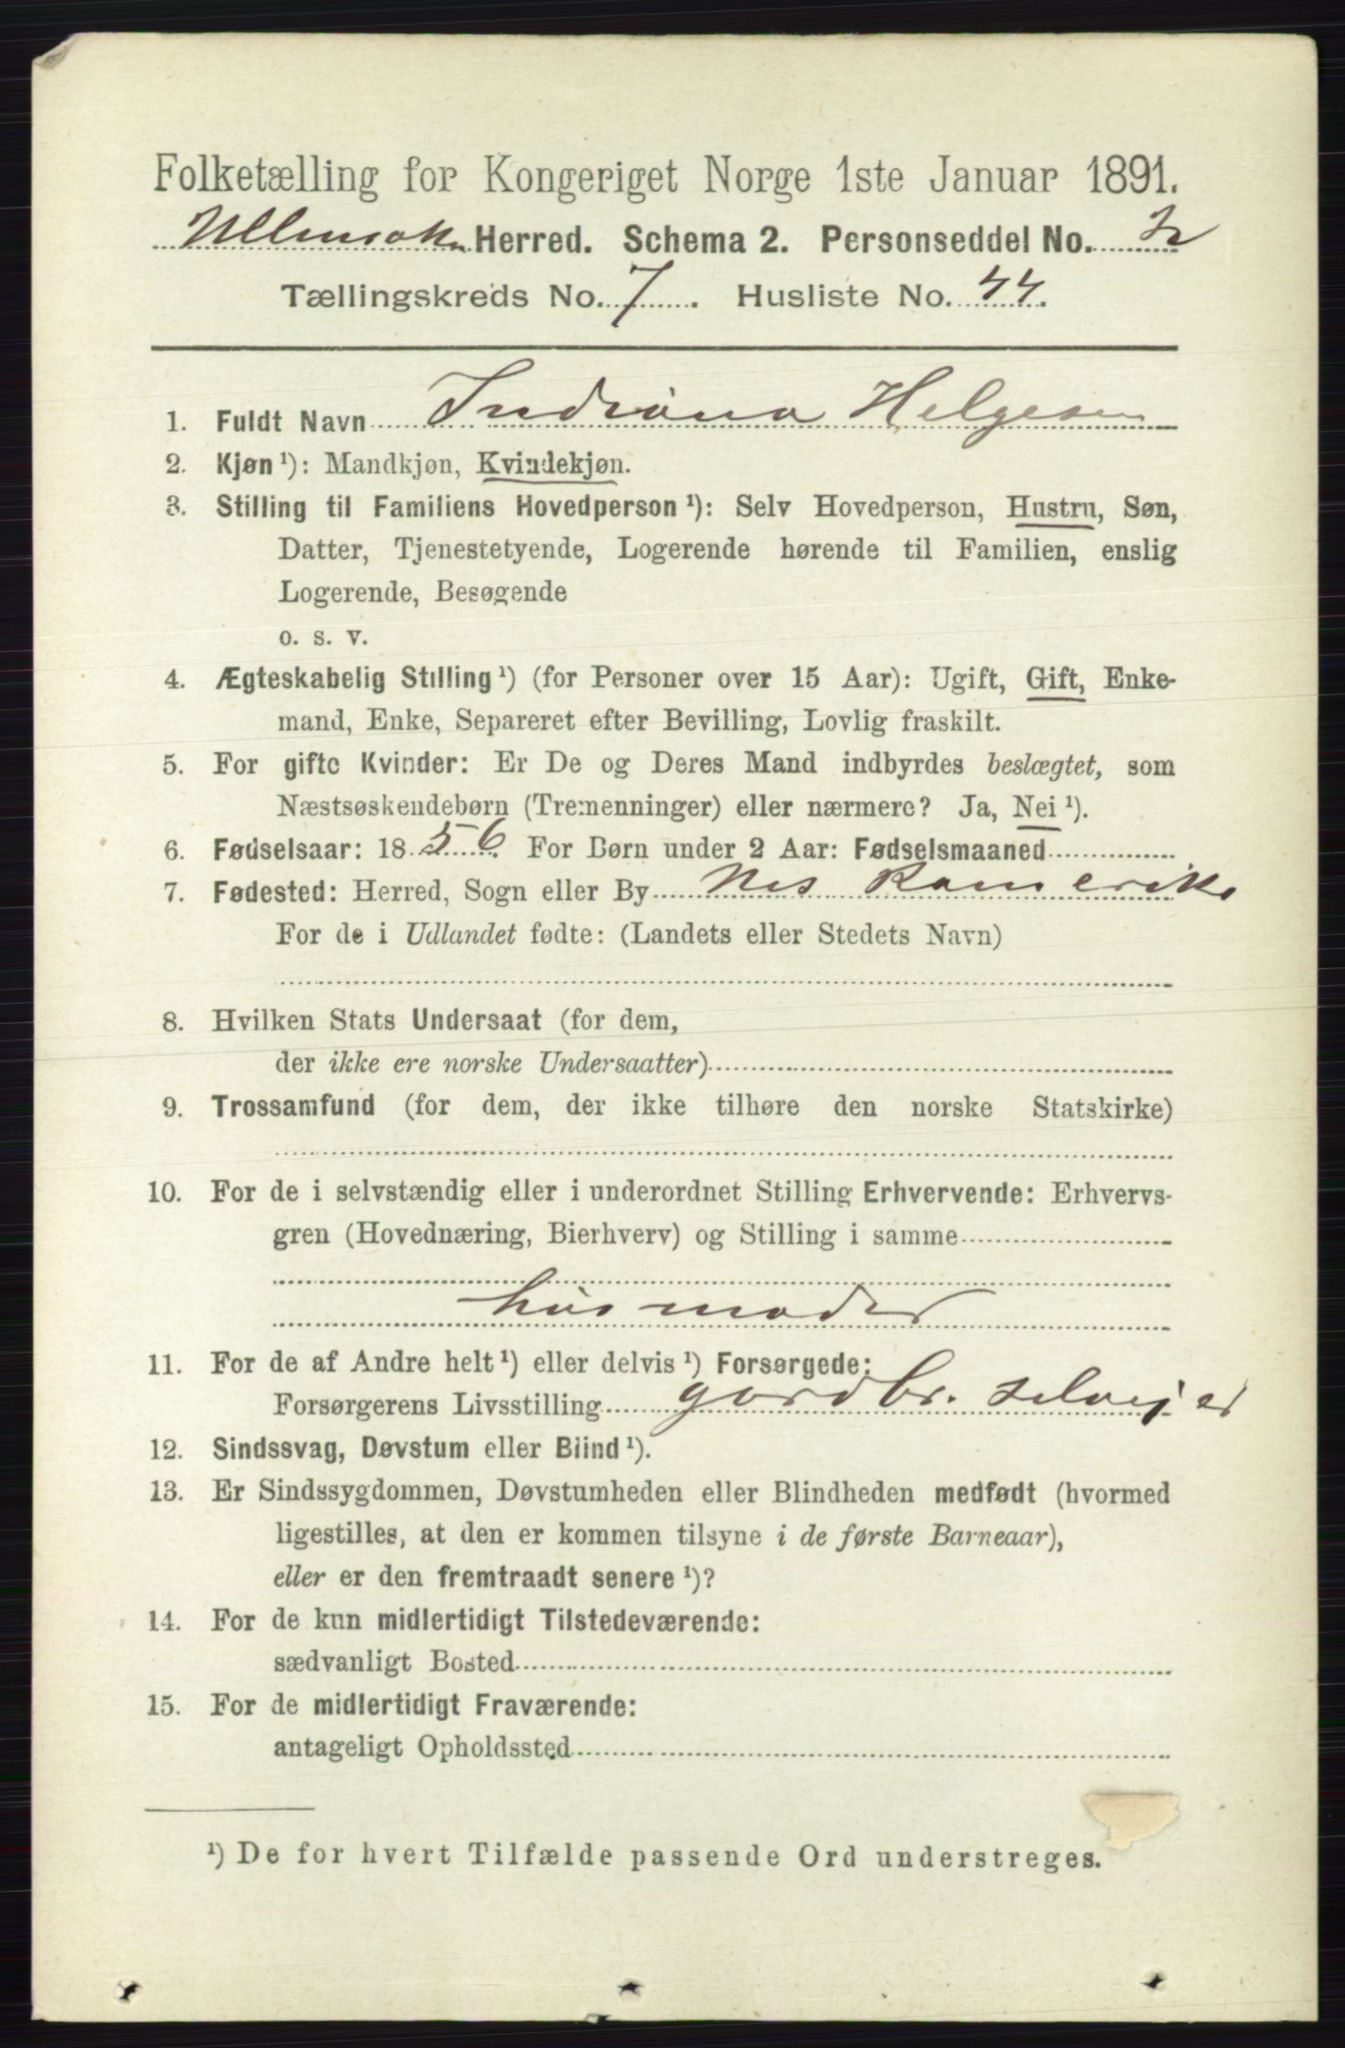 Folketælling for Kongeriget Norge 1ste Januar 1891.
Ullensaker Herred. Schema 2. Personseddel No. 2
Tællingskreds No. 7. Husliste No. 44.
1. Fuldt Navn Indiana Helgesen
2. Kjøn ¹): Mandkjøn, Kvindekjøn.
3. Stilling til Familiens Hovedperson ¹): Selv Hovedperson, Hustru, Søn,
Datter, Tjenestetyende, Logerende hørende til Familien, enslig
Logerende, Besøgende
o. s. v.
4. Ægteskabelig Stilling ¹) (for Personer over 15 Aar): Ugift, Gift, Enke-
mand, Enke, Separeret efter Bevilling, Lovlig fraskilt.
5. For gifte Kvinder: Er De og Deres Mand indbyrdes beslægtet, som
Næstsøskendebørn (Tremenninger) eller nærmere? Ja, Nei ¹).
6. Fødselsaar: 1856. For Børn under 2 Aar: Fødselsmaaned
7. Fødested: Herred, Sogn eller By Nes Romerike
For de i Udlandet fødte: (Landets eller Stedets Navn)
8. Hvilken Stats Undersaat (for dem,
der ikke ere norske Undersaatter)
9. Trossamfund (for dem, der ikke tilhøre den norske Statskirke)
10. For de i selvstændig eller i underordnet Stilling Erhvervende: Erhvervs-
gren (Hovednæring, Bierhverv) og Stilling i samme
husmoder
11. For de af Andre helt ¹) eller delvis ¹) Forsørgede:
Forsørgerens Livsstilling gordbr. selveier
12. Sindssvag, Døvstum eller Blind ¹).
13. Er Sindssygdommen, Døvstumheden eller Blindheden medfødt (hvormed
ligestilles, at den er kommen tilsyne i de første Barneaar),
eller er den fremtraadt senere ¹)?
14. For de kun midlertidigt Tilstedeværende:
sædvanligt Bosted
15. For de midlertidigt Fraværende:
antageligt Opholdssted
¹) De for hvert Tilfælde passende Ord understreges.